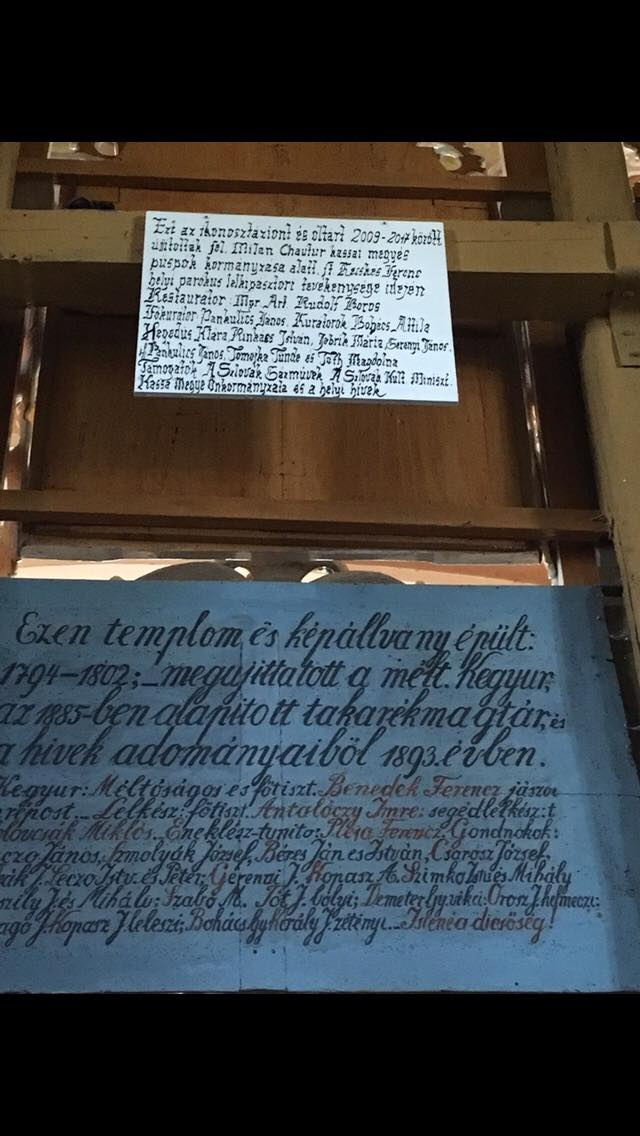 Ezt az ikonosztaziont és oltart 2009-2017 között
ujitottak fel. Milan Chautur kassai megyes
puspok kormanyzasa alatt. ft Kecskes Ferenc
helyi parokus lelkipasztori tevekenysege idejen
Restaurator: Mgr. Art. Rudolf Boros
Fökurator Pankulics Janos. Kuratorok Bohacs Attila
Hevedus Klara Runkacs Istvan, Jobrik Maria, Gerenyi Janos.
Pankulics Janos, Tomojka Tunde es Toth Magdolna
Tamogatok A Szlovak Gazmüvek A Szlovak Kult Miniszt.
Kassa Megye Onkormanyzata es a helyi hivek
Ezen templom és képállvány épült:
1794-1802; megujittatott a mélt. Kegyur,
az 1885-ben alapitott takarékmagtár, és
a hivek adományaiböl 1893. évben.
Kegyur: Méltóságos és főtiszt. Benedek Ferencz jászo
prépost. Lelkész: főtiszt. Antalóczy Imre: segédlelkész: t
Miklós. Éneklész-tynito: Plésa Ferencz. Gondnokok:
János, Szmolyák József, Béres Ján és István, Csarosz József,
Leczo Istv. és Péter, Gerenyi J. Kopasz A. Szimko Ján és Mihály
J. és Mihály: Szabó M. Tót J. bolyi; Demeter Gy. vikei: Orosz J. kelmeczi:
J. Kopasz J. leleszi; Bohács Gy. Király J. zétényi. Istené a dicsöség!